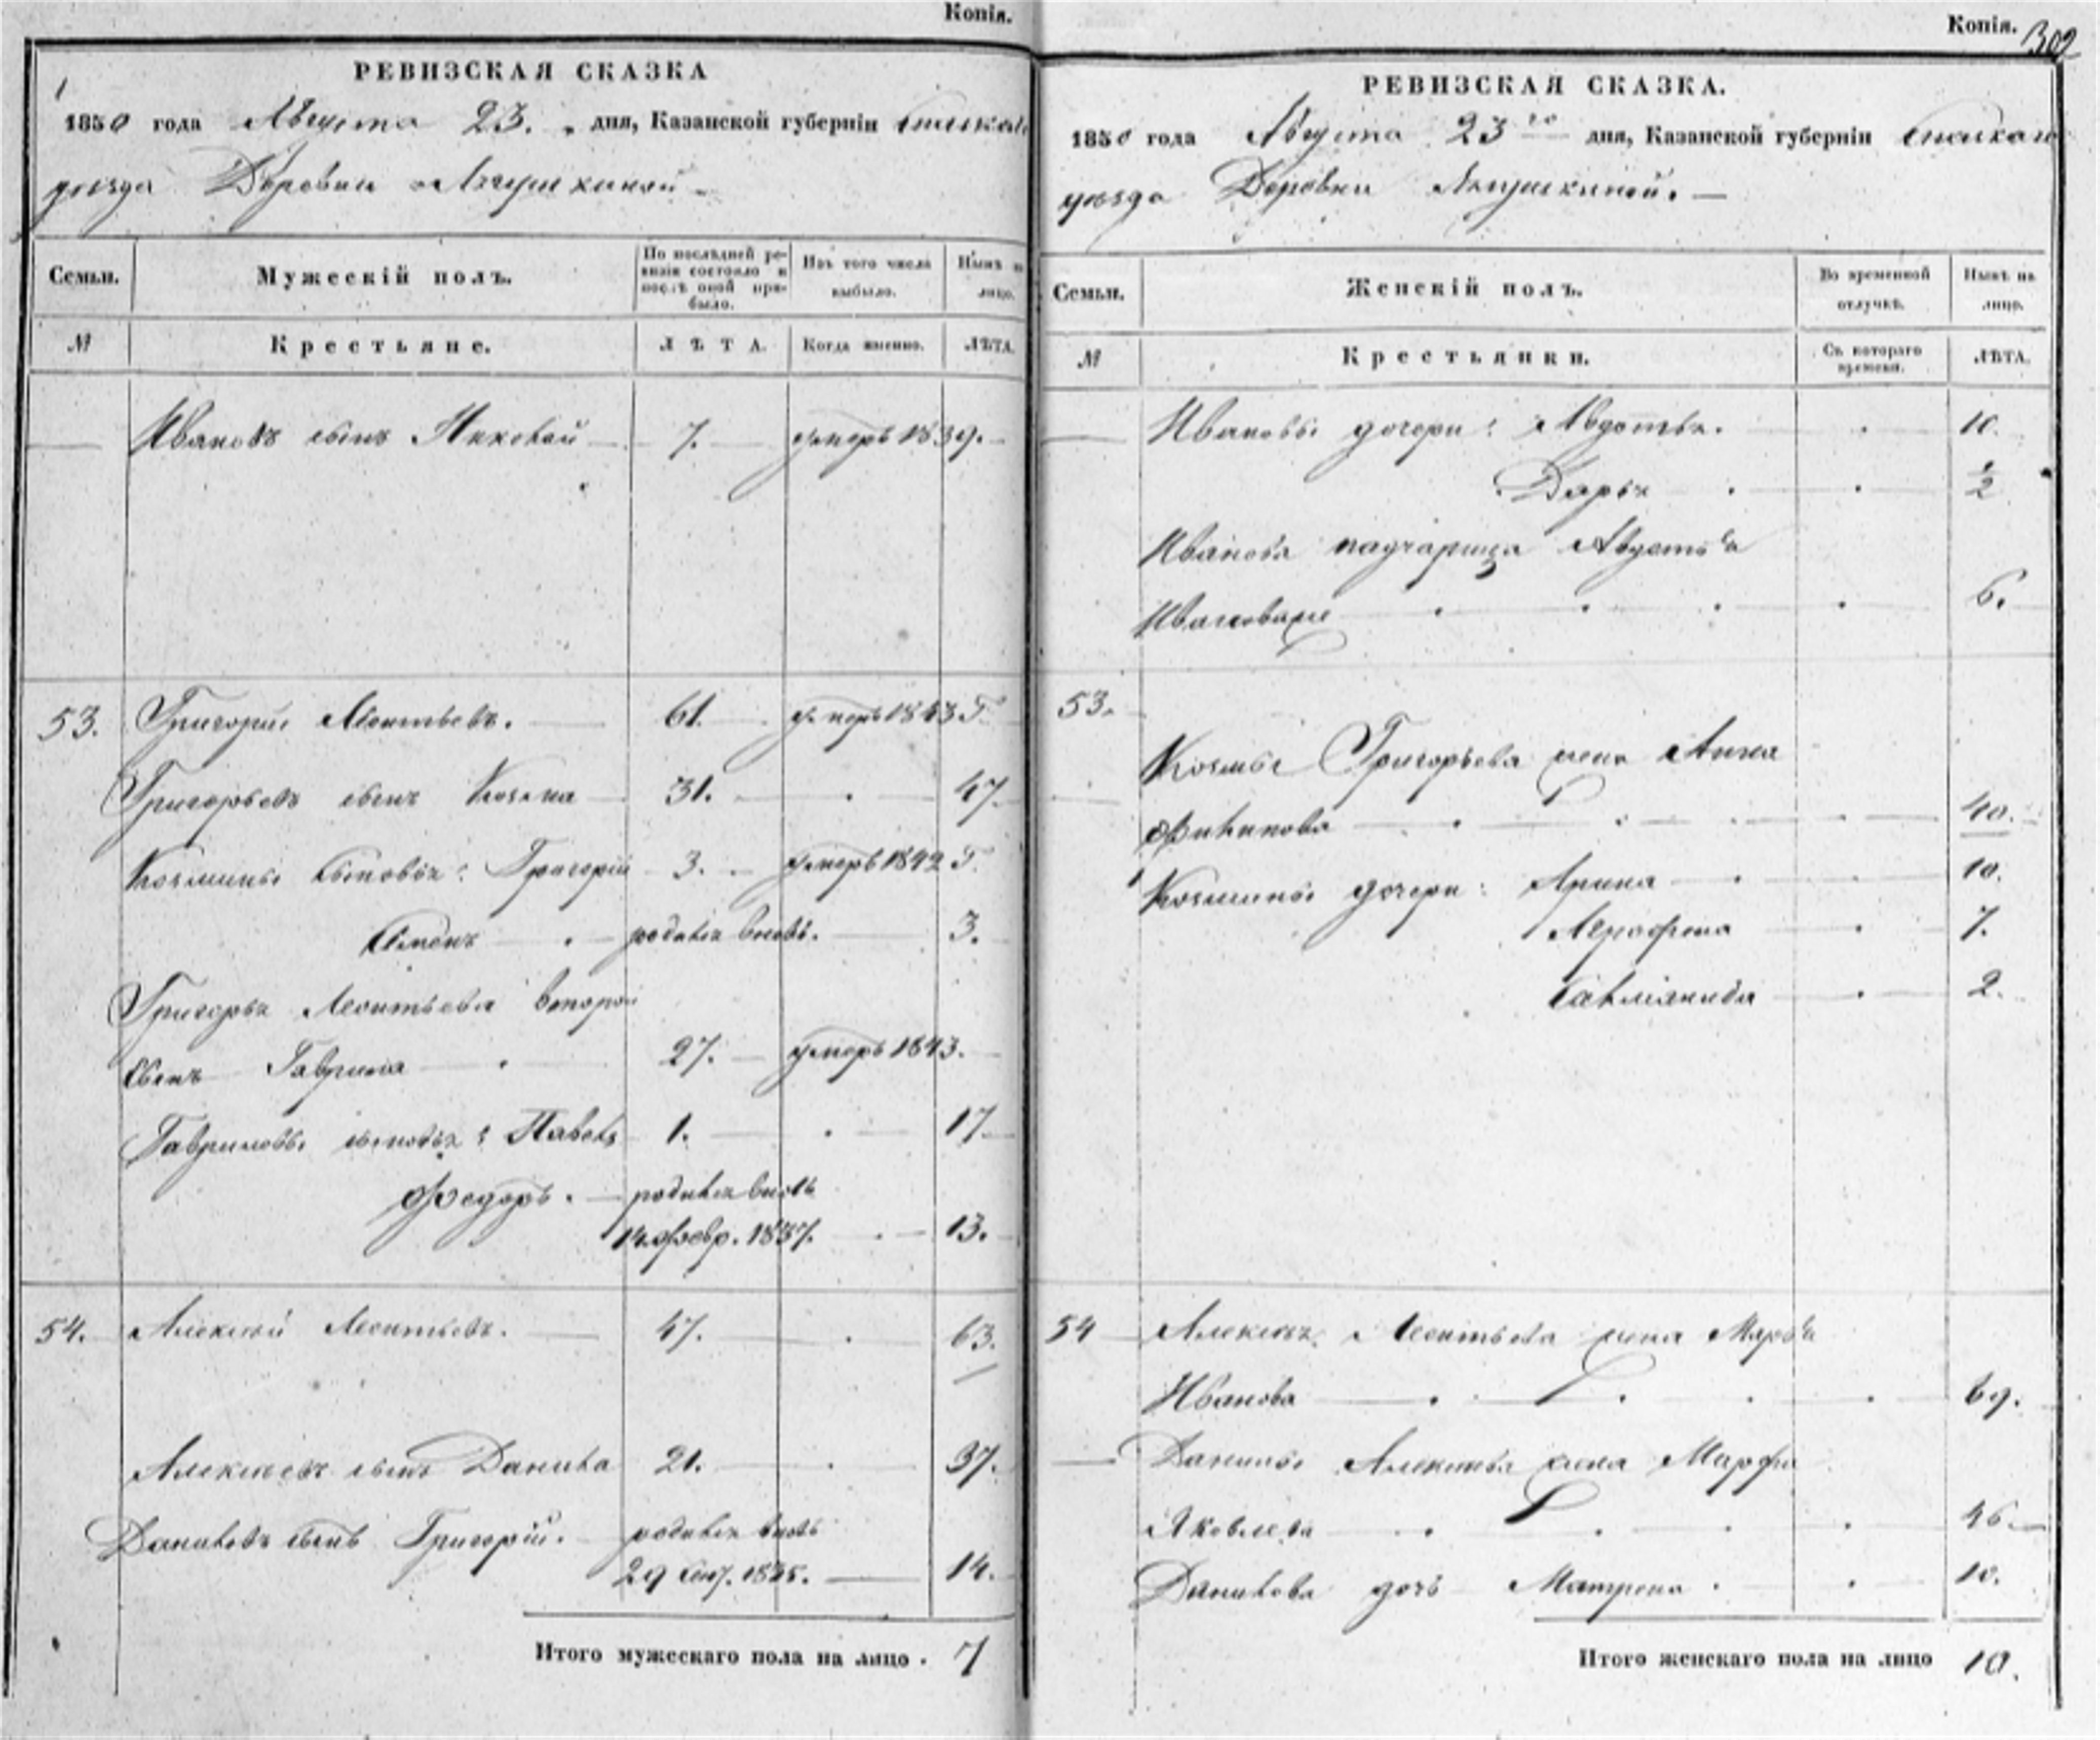 Копія.
РЕВИЗСКАЯ СКАЗКА
1850 года Августа 23. дня, Казанской губерніи Спаскаго
уѣзда Деревни
Семьи.
Мужескій полъ.
По послѣдней ре-
визіи состояло и
послѣ оной при-
было.
Изъ того числа
выбыло.
Нынѣ на
лицо.
№
Крестьяне.
ЛѢТА.
Когда именно.
ЛѢТА.
Ивановъ сынъ 7. умеръ 1839.
53. Григорій Леонтьевъ. 61. умеръ 1843 Г.
Григорьевъ сынъ Козма 31. 47.
Козмины сыновья: Григорій 3. умеръ 1842 Г.
Семенъ родился вновь. 3.
Григорья Леонтьева второй
сынъ Гаврила 27. умеръ 1843.
Гавриловы сыновья: Павелъ 1. 17.
Федоръ. родился вновь
14 Февр. 1837. 13.
54. Алексѣй Леонтьевъ. 47. 63.
Алексѣевъ сынъ Данила 21. 37.
Даниловъ сынъ Григорій. родился вновь
29 1835. 14.
Итого мужескаго пола на лицо. 7
Копія. 302
РЕВИЗСКАЯ СКАЗКА.
1850 года Августа 23го дня, Казанской губерніи Спаскаго
уѣзда Деревни
Семьи.
Женскій полъ.
Во временной
отлучкѣ.
Нынѣ на
лицо.
№
Крестьянки.
Съ котораго
времени.
ЛѢТА.
Ивановы дочери: Авдотья. 10.
Дарья ½
Иванова падчарица Авдотья
6.
53.
Козмы Григорьева жена Анна
Филипова 40.
Козмины дочери: Арина 10.
Аграфена 7.
2.
54 Алексѣя Леонтьева жена Марья
Иванова 69.
Данилы Алексѣева жена Марфа
Яковлева 46.
Данилова дочь Матрена 10.
Итого женскаго пола на лицо 10.